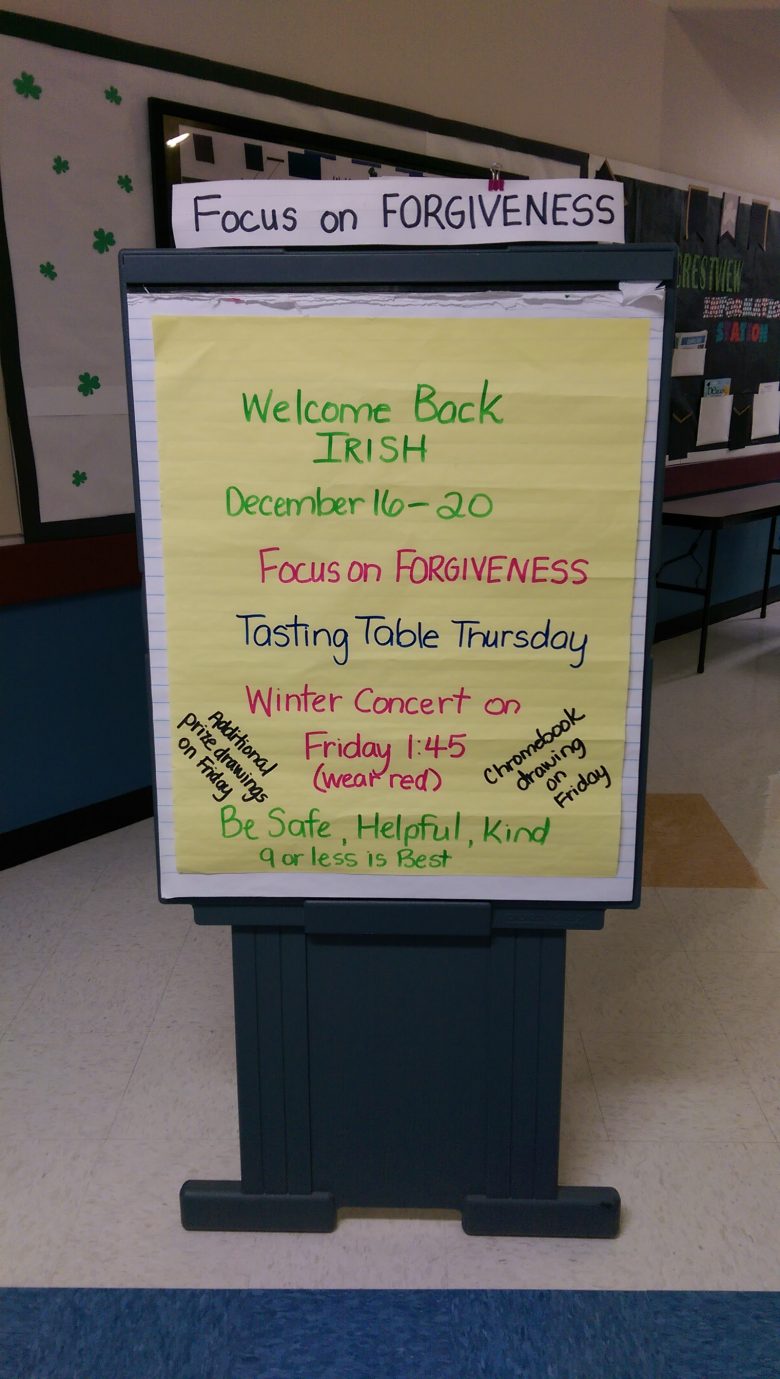 Focus on FORGIVENESS
Welcome Back
IRISH
December 16-20
Focus on FORGIVENESS
Tasting Table Thursday
Winter Concert on
Friday 1:45
(wear red)
Additional
prize drawings
on Friday
Chromebook
drawing
on
Friday
Be Safe, Helpful, Kind
9 or less is Best
CRESTVIEW
STATION